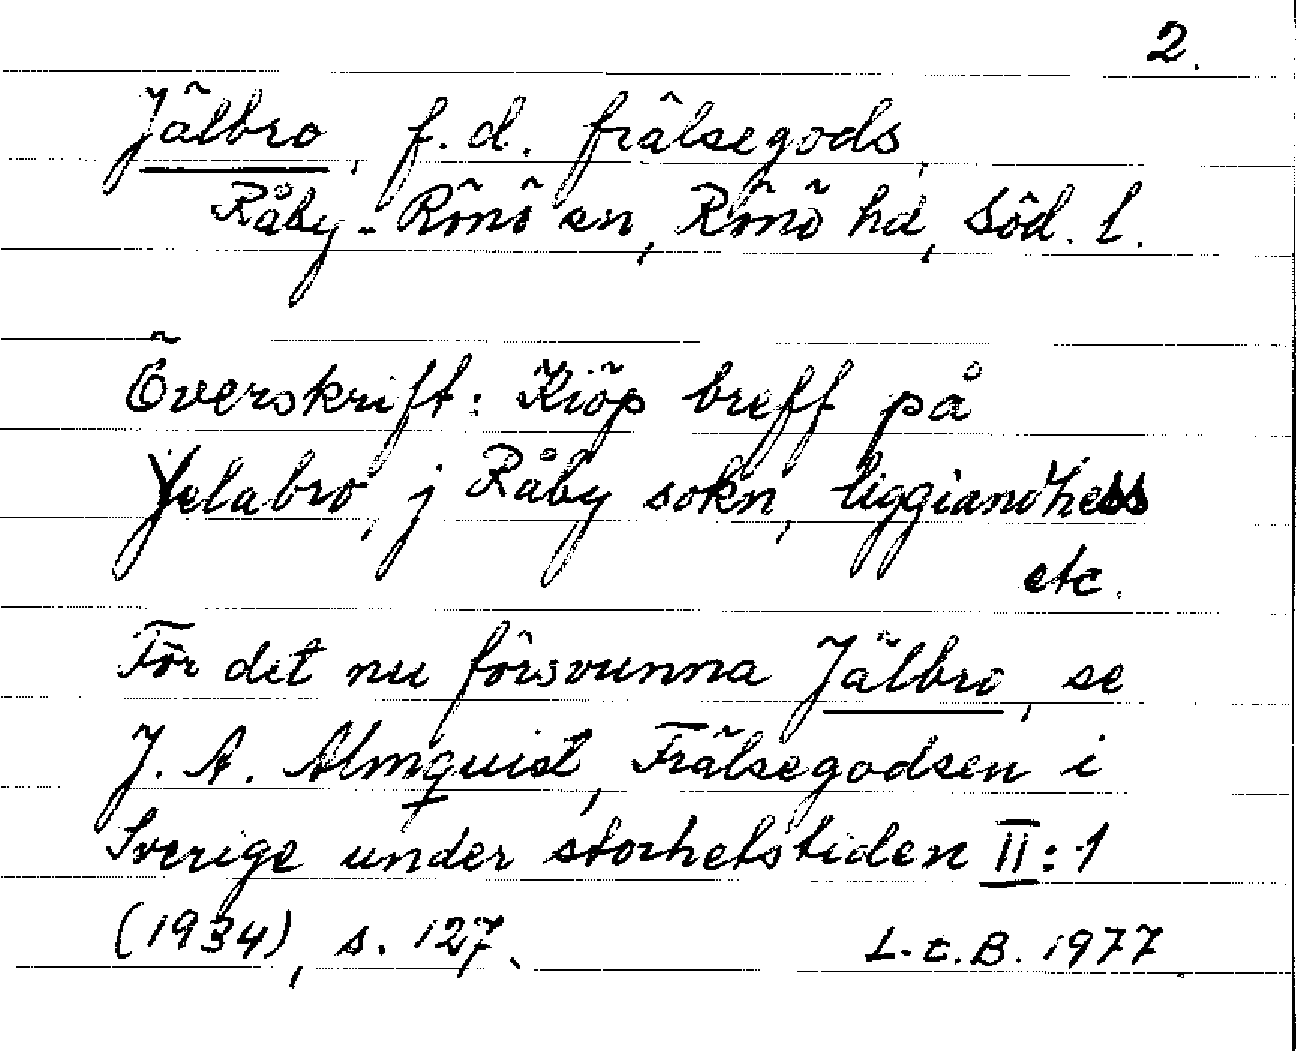 2.
Jälbro, f.d. frälsegods,
Råby-Rönö sn, Rönö hd, Söd. l.
Överskrift: Kiöp breff på
Jelabro, j Råby sokn, liggiandhess
etc.
För det nu försvunna Jälbro, se
J. A. Almquist, Frälsegodsen i
Sverige under storhetstiden II:1
(1934), s. 127.
L.t.B. 1977.